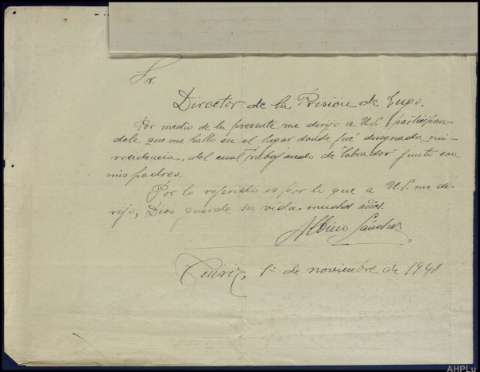 Sr.
Director de la Prisión de Lugo.
Por medio de la presente me dirijo a U.S. participan-
dole que me hallo en el lugar donde fué designada mi
residencia, del cual trabajando de labrador junto con
mis padres.
Por lo referido es por lo que a U.S. me di-
rijo, Dios guarde su vida muchos años.
Albino Sánchez
1º de noviembre de 1941
AHPLu